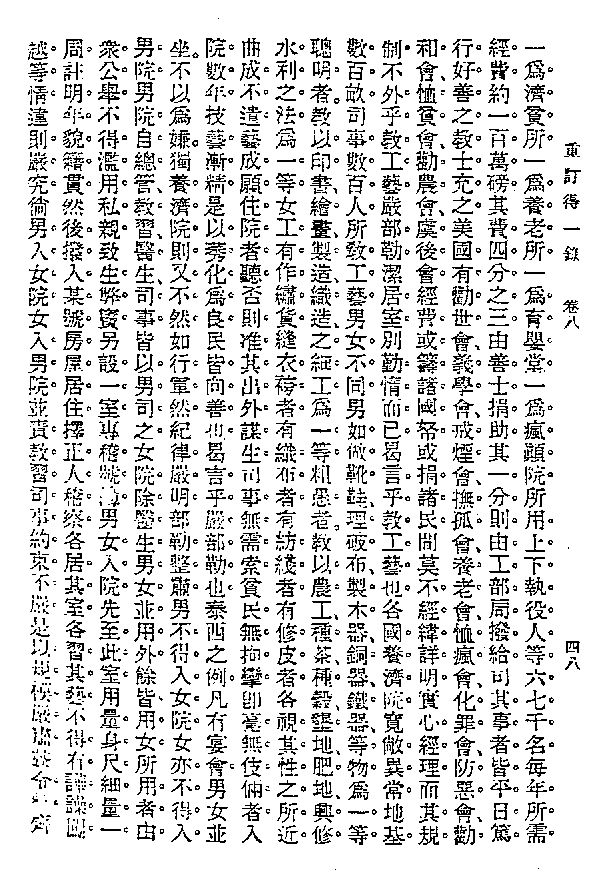 重訂得一錄 卷八 四八
一爲濟貧所一爲養老所一爲育嬰堂一爲瘋顚院所用上下執役人等六七千名每年所需
經費約一百萬磅其費四分之三由善士捐助其一分則由工部局撥給司其事者皆平日篤
行好善之教士充之美國有勸世會義學會戒煙會撫孤會養老會恤瘋會化罪會防惡會勸
和會恤貧會勸農會虞後會經費或籌諸國帑或捐諸民間莫不經緯詳明實心經理而其規
制不外乎教工藝嚴部勒潔居室別勤惰而已曷言乎教工藝也各國養濟院寬敞異常地基
數百畝司事數百人所敎工藝男女不同男如做靴鞋理破布製木器銅器鐵器等物爲一等
聰明者教以印書繪畫製造織造之細工爲一等粗愚者教以農工種茶種穀墾地肥地興修
水利之法爲一等女工有作繡貨縫衣荷者有織布者有紡綫者有修皮者各視其性之所近
曲成不遺藝成願住院者聽否則准其出外謀生司事無需索貧民無拘攣卽毫無伎倆者入
院數年技藝漸精是以莠化爲良民皆向善也曷言乎嚴部勒也泰西之例凡有宴會男女並
坐不以爲嫌獨養濟院則又不然如行軍然紀律嚴明部勒整肅男不得入女院女亦不得入
男院男院自總管教習醫生司事皆以男司之女院除醫生男女並用外餘皆用女所用者由
衆公舉不得濫用私親致生弊竇另設一室專稽號簿男女入院先至此室用量身尺細量一
周註明年貌籍貫然後撥入某號房屋居住擇正人稽察各居其室各習其藝不得有譁譟
越等情違則嚴究倘男入女院女入男院並責教習司事約束不嚴是以規模嚴肅號令 齊